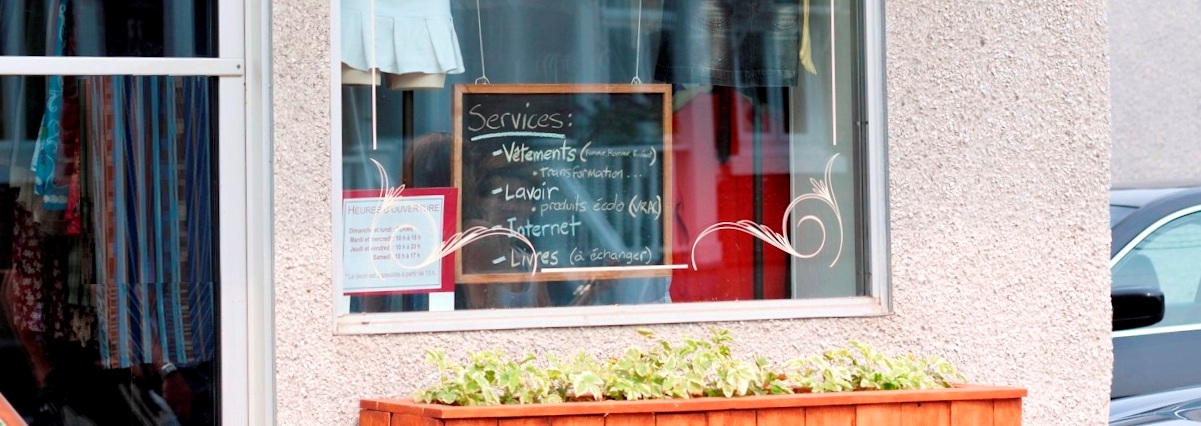 Services:
- Vêtements (Femme Homme Enfant)
• Transformation...
- Lavoir
• produits écolo (VRAC)
- Internet
- Livres (à échanger)
HEURES D'OUVERTURE
Dimanche et lundi : FERMÉ
Mardi et mercredi : 10 h à 18 h
Jeudi et vendredi : 10 h à 20 h
Samedi : 10 h à 17 h